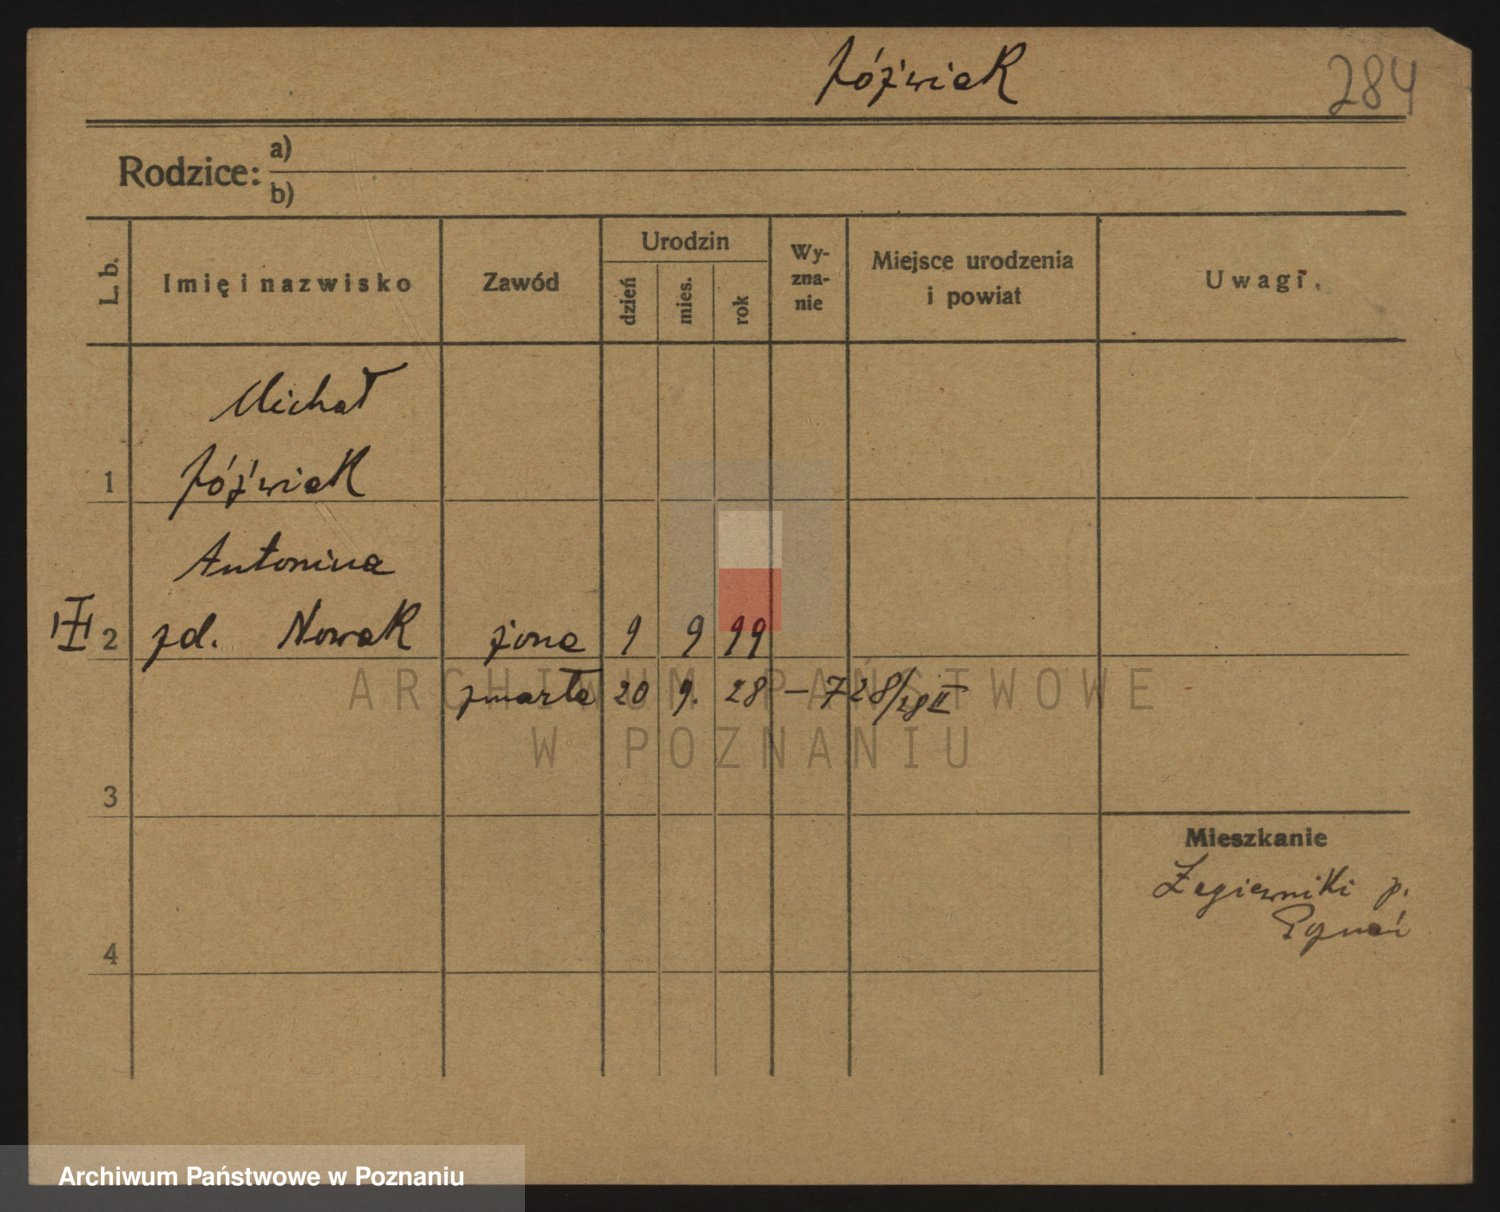 Jóźwiak
284
Rodzice: a)
b)
L. b.
Imię i nazwisko
Zawód
Urodzin
dzień
mies.
rok
Wy-
zna-
nie
Miejsce urodzenia
i powiat
Uwagi.
Michał
1 Jóźwiak
Antonina
III 2 zd. Nowak żona 9 9 99
zmarła 20 9. 28 – 728/28 II
3
4
Mieszkanie
Żegierniki p.
ARCHIWUM PAŃSTWOWE
W POZNANIU
Archiwum Państwowe w Poznaniu